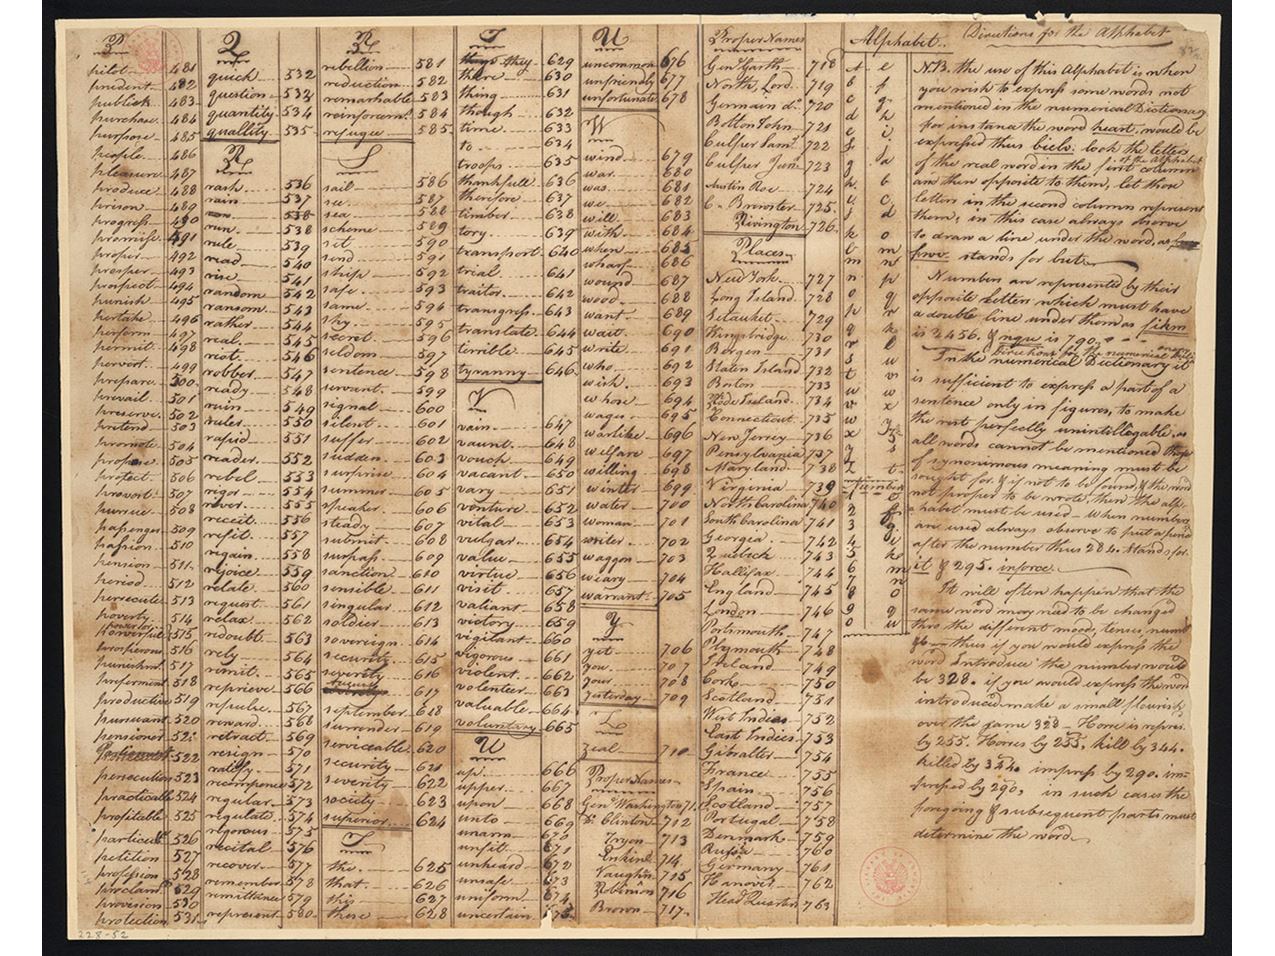 P
pilot 481
prudent 482
publick 483
purchase 484
purpose 485
people 486
pleasure 487
produce 488
prison 489
progress 490
promise 491
proper 492
prosper 493
prospect 494
punish 495
pertake 496
perform 497
permit 498
pervert 499
prepare 500
prevail 501
preserve 502
pretend 503
promote 504
propose 505
protect 506
provost 507
pursue 508
passenger 509
passion 510
pension 511
period 512
persecute 513
poverty 514
powerful 515
prosperous 516
punishment 517
preferment 518
productive 519
pursuant 520
pensioner 521
Parliament 522
persecution 523
practicable 524
profitable 525
particular 526
petition 527
profession 528
proclaim 529
provision 530
protection 531
Q
quick 532
question 532
quantity 534
quallity 535
R
rash 536
rain 537
538
run 538
rule 539
read 540
rise 541
random 542
ransom 543
rather 544
real 545
riot 546
robber 547
ready 548
ruin 549
ruler 550
rapid 551
reader 552
rebel 553
rigor 554
river 555
receit 556
refit 557
regain 558
rejoice 559
relate 560
request 561
relax 562
redoubt 563
rely 564
remit 565
reprieve 566
repulse 567
reward 568
retract 569
resign 570
ratify 571
recompence 572
regular 573
regulate 574
rigorous 575
recital 576
recover 577
remember 578
remittance 579
represent 580
R
rebellion 581
reduction 582
remarkable 583
reinforcemt. 584
refugee 585
S
sail 586
see 587
sea 588
scheme 589
set 590
send 591
ship 592
safe 593
same 594
sky 595
secret 596
seldom 597
sentence 598
servant 599
signal 600
silent 601
suffer 602
sudden 603
surprise 604
summer 605
speaker 606
steady 607
submit 608
surpass 609
sanction 610
sensible 611
singular 612
soldier 613
sovereign 614
security 615
severity 616
617
september 618
surrender 619
serviceable 620
security 621
severity 622
society 623
superior 624
T
the 625
that 626
this 627
these 628
T
they 629
there 630
thing 631
though 632
time 633
to 634
troops 635
thankfull 636
therefore 637
timber 638
tory 639
transport 640
trial 641
traitor 642
transgress 643
translate 644
terrible 645
tyranny 646
V
vain 647
vaunt 648
vouch 649
vacant 650
vary 651
venture 652
vital 653
vulgar 654
value 655
virtue 656
visit 657
valiant 658
victory 659
vigilant 660
vigorous 661
violent 662
volenteer 663
valuable 664
voluntary 665
U
up 666
upper 667
upon 668
unto 669
unarm 670
unfit 671
unheard 672
unsafe 673
uniform 674
uncertain 675
U
uncommon 676
unfriendly 677
unfortunate 678
W
wind 679
war 680
was 681
we 682
will 683
with 684
when 685
wharf 686
wound 687
wood 688
want 689
wait 690
write 691
who 692
wish 693
whose 694
wages 695
warlike 696
welfare 697
willing 698
winter 699
water 700
woman 701
writer 702
waggon 703
weary 704
warrant 705
Y
yet 706
you 707
your 708
yesterday 709
Z
zeal 710
Proper Names
Genl. Washington 71.
Do. Clinton 712
Tryon 713
Erskine 714
Vaughn 715
Robinson 716
Brown 717
Proper Names
Genl. Garth 718
North, Lord 719
Germain do. 720
Bolton John 721
Culper Saml. 722
Culper Junr. 723
Austin Roe 724
C. Brewster 725.
Rivington 726.
Places
New York 727
Long Island 728
Setauket 729
Kingsbridge 730
Bergen 731
Staten Island 732
Boston 733
Rhode Island 734
Connecticut 735
New Jersey 736
Pensylvania 737
Maryland 738
Virginia 739
North Carolina 740
South Carolina 741
Georgia 742
Quebeck 743
Hallifax 744
England 745
London 746
Portsmouth 747
Plymouth 748
Ireland 749
Cork 750
Scotland 751
West Indies 752
East Indies 753
Gibralter 754
France 755
Spain 756
Scotland 757
Portugal 758
Denmark 759
Russia 760
Germany 761
Hanover 762
Head Quarters 763
Alphabet.
a e
b f
c g
d h
e i
f j
g a
h b
i c
j d
k o
l m
m n
n p
o q
p r
q k
r l
s u
t v
u w
v x
w y
x z
y s
z t
Numbers
1 e
2 f
3 g
4 i
5 k
6 m
7 n
8 o
9 q
0 u
Directions for the Alphabet
N.B. the use of this Alphabet is when
you wish to express some words not
mentioned in the numerical Dictionary
for instance the word heart. would be
expressed thus biels. look the letters
of the real word in the first column of the Alphabet
and then opposite to them, let those
letters in the second column represent
them, in this case always observe
to draw a line under the word, as
fwv. stands for but.
Numbers are represented by their
opposite Letters which must have
a double line under them as fikm
is 2456. & nqu is 790.
Directions for the numerical Dictionary
In the numerical Dictionary it
is sufficient to express a part of a
sentence only in figures, to make
the rest perfectly unintellegable, as
all words cannot be mentioned those
of synonimous meaning must be
sought for, & if not to be found, & the word
not proper to be wrote, then the alp-
habet must be used— when numbers
are used always observe to put a period
after the number thus 284. stands for
it & 295. inforce.
It will often happen that the
same word may need to be changed
thro the different moods, tenses, numbers
thus if you would express the
word Introduce the number would
be 328. if you would express the word
introduced make a small flourish
over the same 328 — Horse is repres.
by 255. Horses by 255. kill by 344.
killed by 344. impress by 290. im-
pressed by 290, in such cases the
foregoing & subsequent parts must
determine the word
228-52